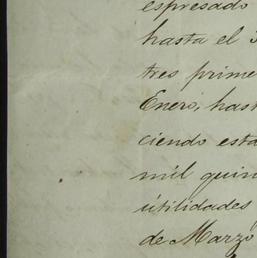 espresado
hasta el
tres prime
Enero, hast
ciendo esta
mil quin
útilidades
de Marzo